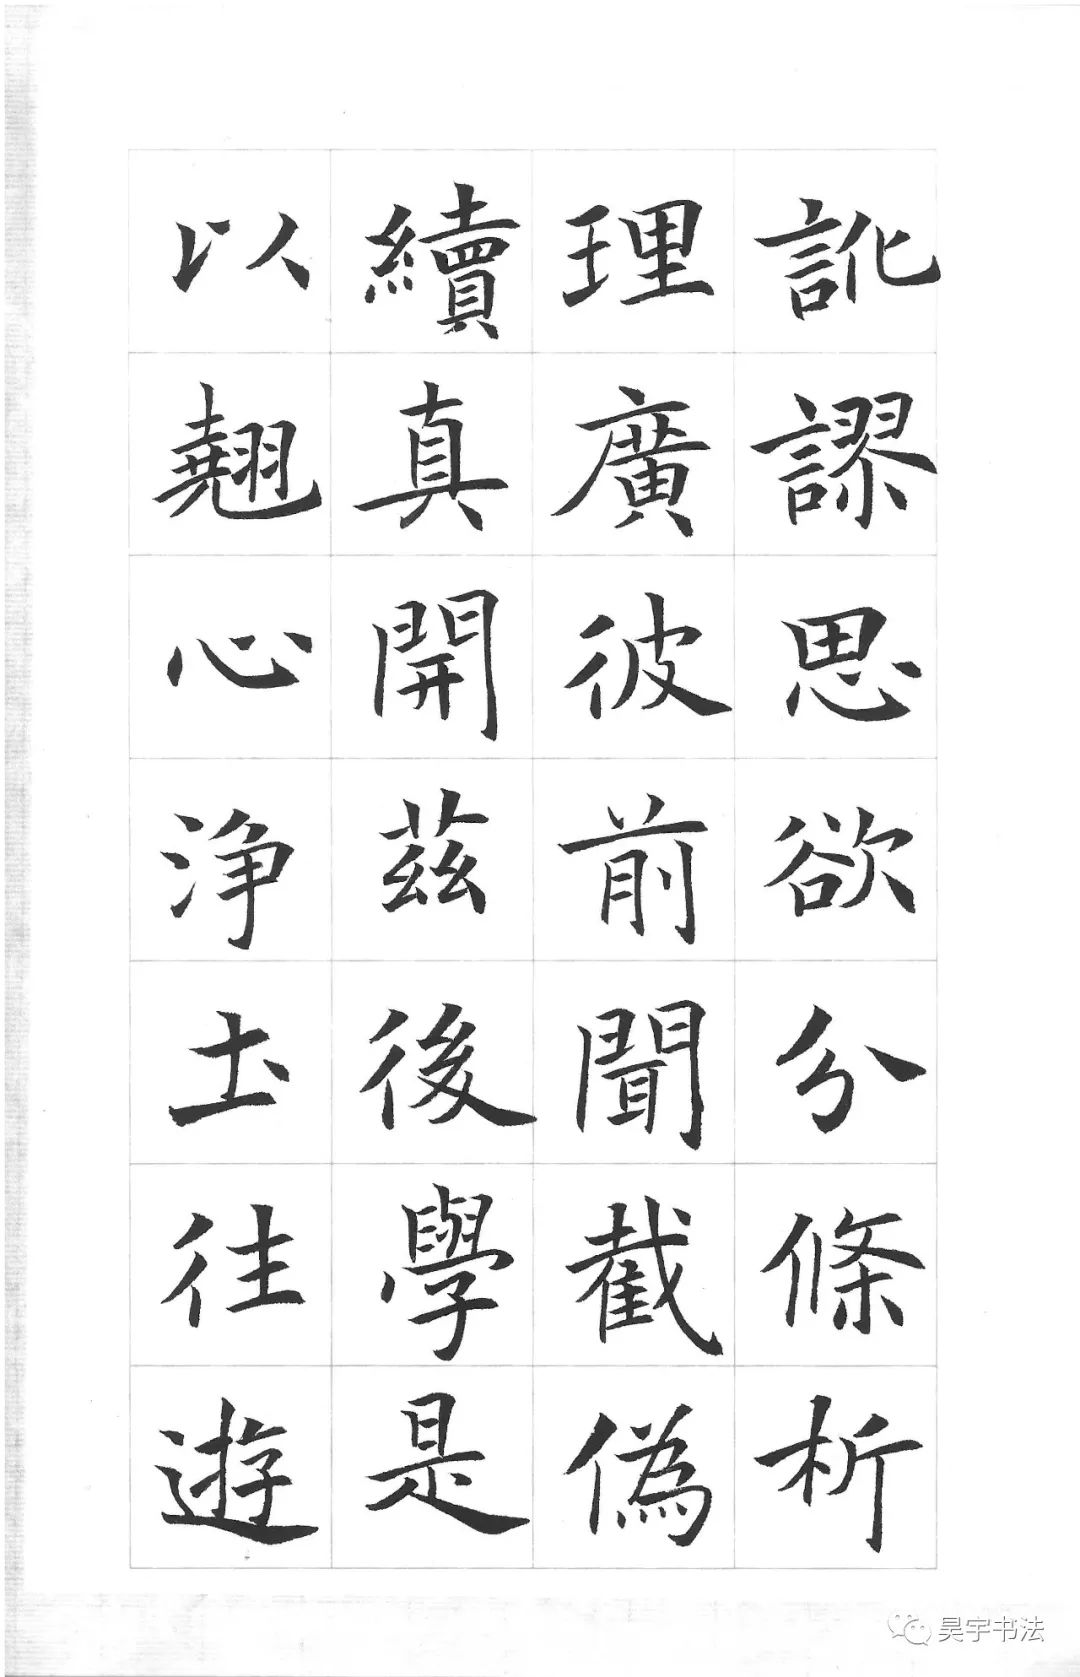 訛謬思欲分條析
理廣彼前聞截偽
續真開茲後學是
以翹心净土往遊
昊宇书法